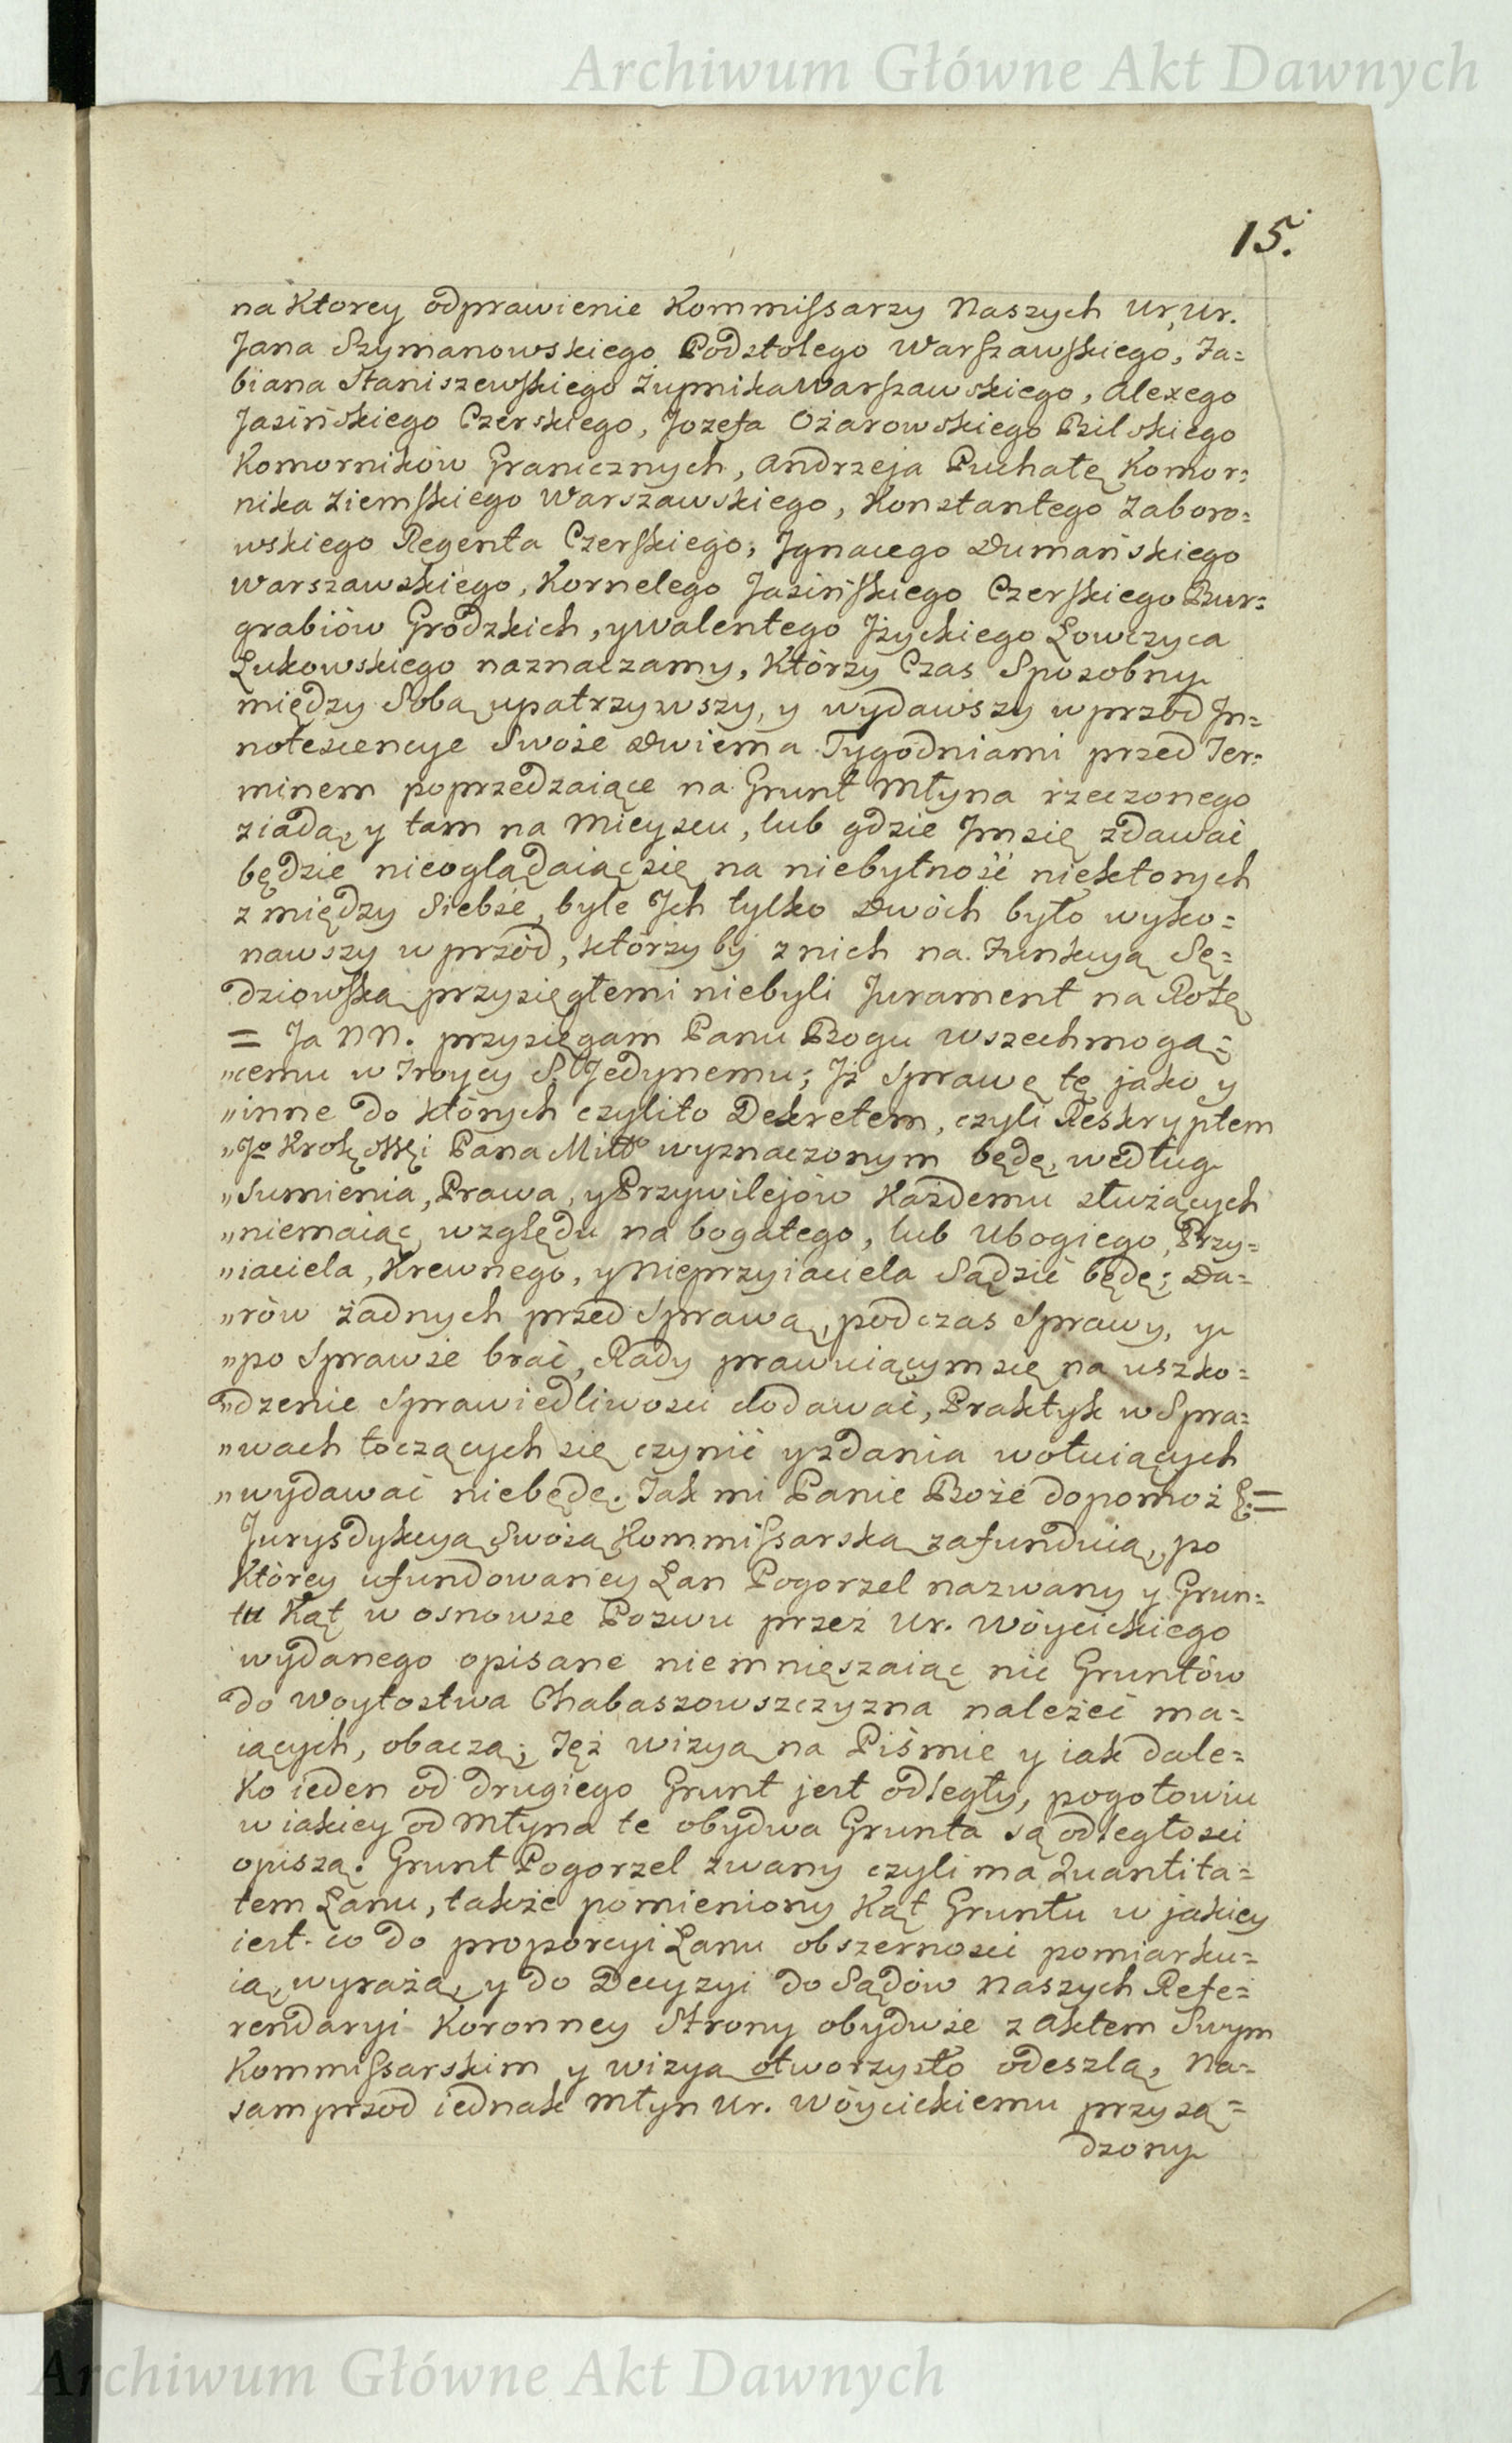 Archiwum Główne Akt Dawnych
15.
na Ktorey odprawienie Kommissarzy Naszych Ur. Ur.
Jana Szymanowskiego Podstolego Warszawskiego, Fa=
biana Staniszewskiego Żupnika Warszawskiego, Alexego
Jasińskiego Czerskiego, Jozefa Ożarowskiego Bilskiego
Komorników Granicznych, Andrzeja Puchatę Komor=
nika Ziemskiego Warszawskiego, Konstantego Zaboro=
wskiego Regenta Czerskiego, Jgnacego Dumańskiego
Warszawskiego, Kornelego Jasińskiego Czerskiego Bur=
grabiów Grodzkich, y Walentego Jżyckiego Łowczyca
Łukowskiego naznaczamy, Którzy Czas Sposobny
między Sobą upatrzywszy, y wydawszy wprzód Jn=
notescencye Swoie dwiema Tygodniami przed Ter=
minem poprzedzaiące na Grunt Młyna rzeczonego
ziadą, y tam na Mieyscu, lub gdzie Jm się zdawać
będzie nieoglądaiąc się na niebytność niektorych
z między Siebie, byle Jch tylko dwóch było wyko=
nawszy wprzód, którzyby z nich na Funkcyą Sę=
dziowską przysięgłemi niebyli Jurament na Rotę
= Ja NN. przysięgam Panu Bogu wszechmogą=
"cemu w Troycy S. Jedynemu; Jż Sprawę tę jako y
"inne do których czylito Dekretem, czyli Reskryptem
"Jo Krolę Mści Pana Miłło wyznaczonym będę, według
"Sumienia, Prawa, y Przywilejów Każdemu służących
"niemaiąc względu na bogatego, lub Ubogiego, Przy=
"iaciela, Krewnego, y Nieprzyiaciela Sądzić będę; Da=
"rów żadnych przed Sprawą, podczas Sprawy, y
"po Sprawie brać, Rady prawuiącym się na uszko=
"dzenie Sprawiedliwości dodawać, Praktyk w Spra=
"wach toczących się czynić y zdania wotuiących
"wydawać niebędę. Tak mi Panie Boże dopomoż &=
Jurysdykcyą Swoią Kommissarską zafunduią, po
Którey ufundowaney Łan Pogorzel nazwany y Grun=
tu Kąt w osnowie Pozwu przez Ur. Wóycickiego
wydanego opisane niemnięszaiąc nic Gruntów
do Woytostwa Chabaszowszczyzna należeć ma=
iących, obaczą; Tęż wizyą na Piśmie y iak dale=
ko ieden od drugiego Grunt jest odległy, pogotowiu
w iakiey od Młyna te obydwa Grunta są odległości
opiszą. Grunt Pogorzel zwany czyli ma Quantita=
tem Łanu, także pomieniony Kąt Gruntu w jakiey
iest co do proporcyi Łanu obszerności pomiarku=
ią, wyrażą, y do Decyzyi do Sądów Naszych Refe=
rendaryi Koronney Strony obydwie z Aktem Swym
Kommissarskim y wizyą otworzysto odeszlą, Na=
samprzod iednak Młyn Ur. Wóycickiemu przysą=
dzony
Archiwum Główne Akt Dawnych